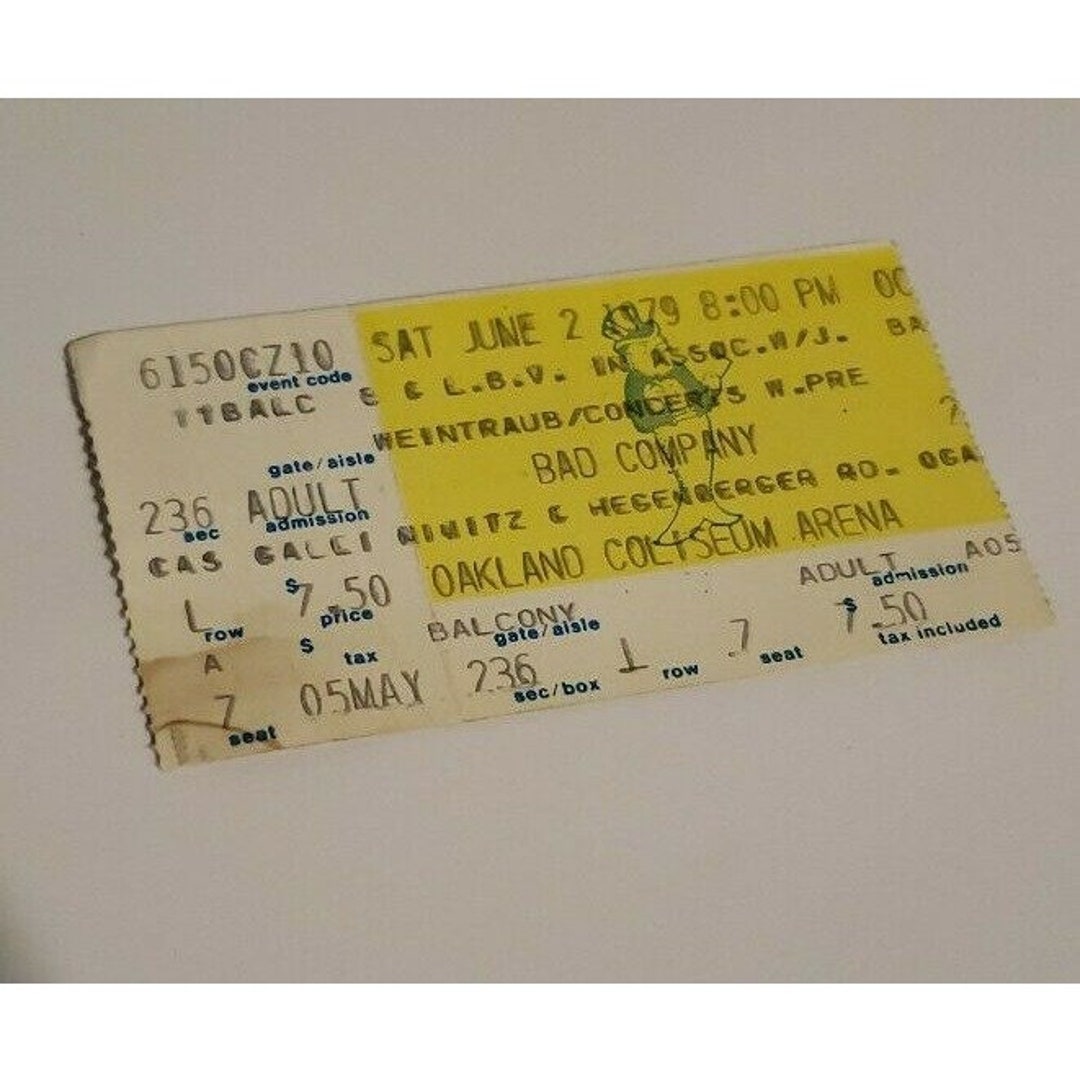 6150CZ10 SAT JUNE 2 1979 8:00 PM OC
event code
11BALC & L.B.V. IN ASSOC.W/J. BA
WEINTRAUB/CONCERTS W.PRE
gate/aisle BAD COMPANY
236 ADULT NIMITZ & HEGENBERGER RD. OGA
sec admission
CAS OAKLAND COLISEUM ARENA
L $7.50 BALCONY ADULT A05
row price gate/aisle admission
A $ tax 236 1 7 $7.50
sec/box row seat tax included
7 05MAY
seat